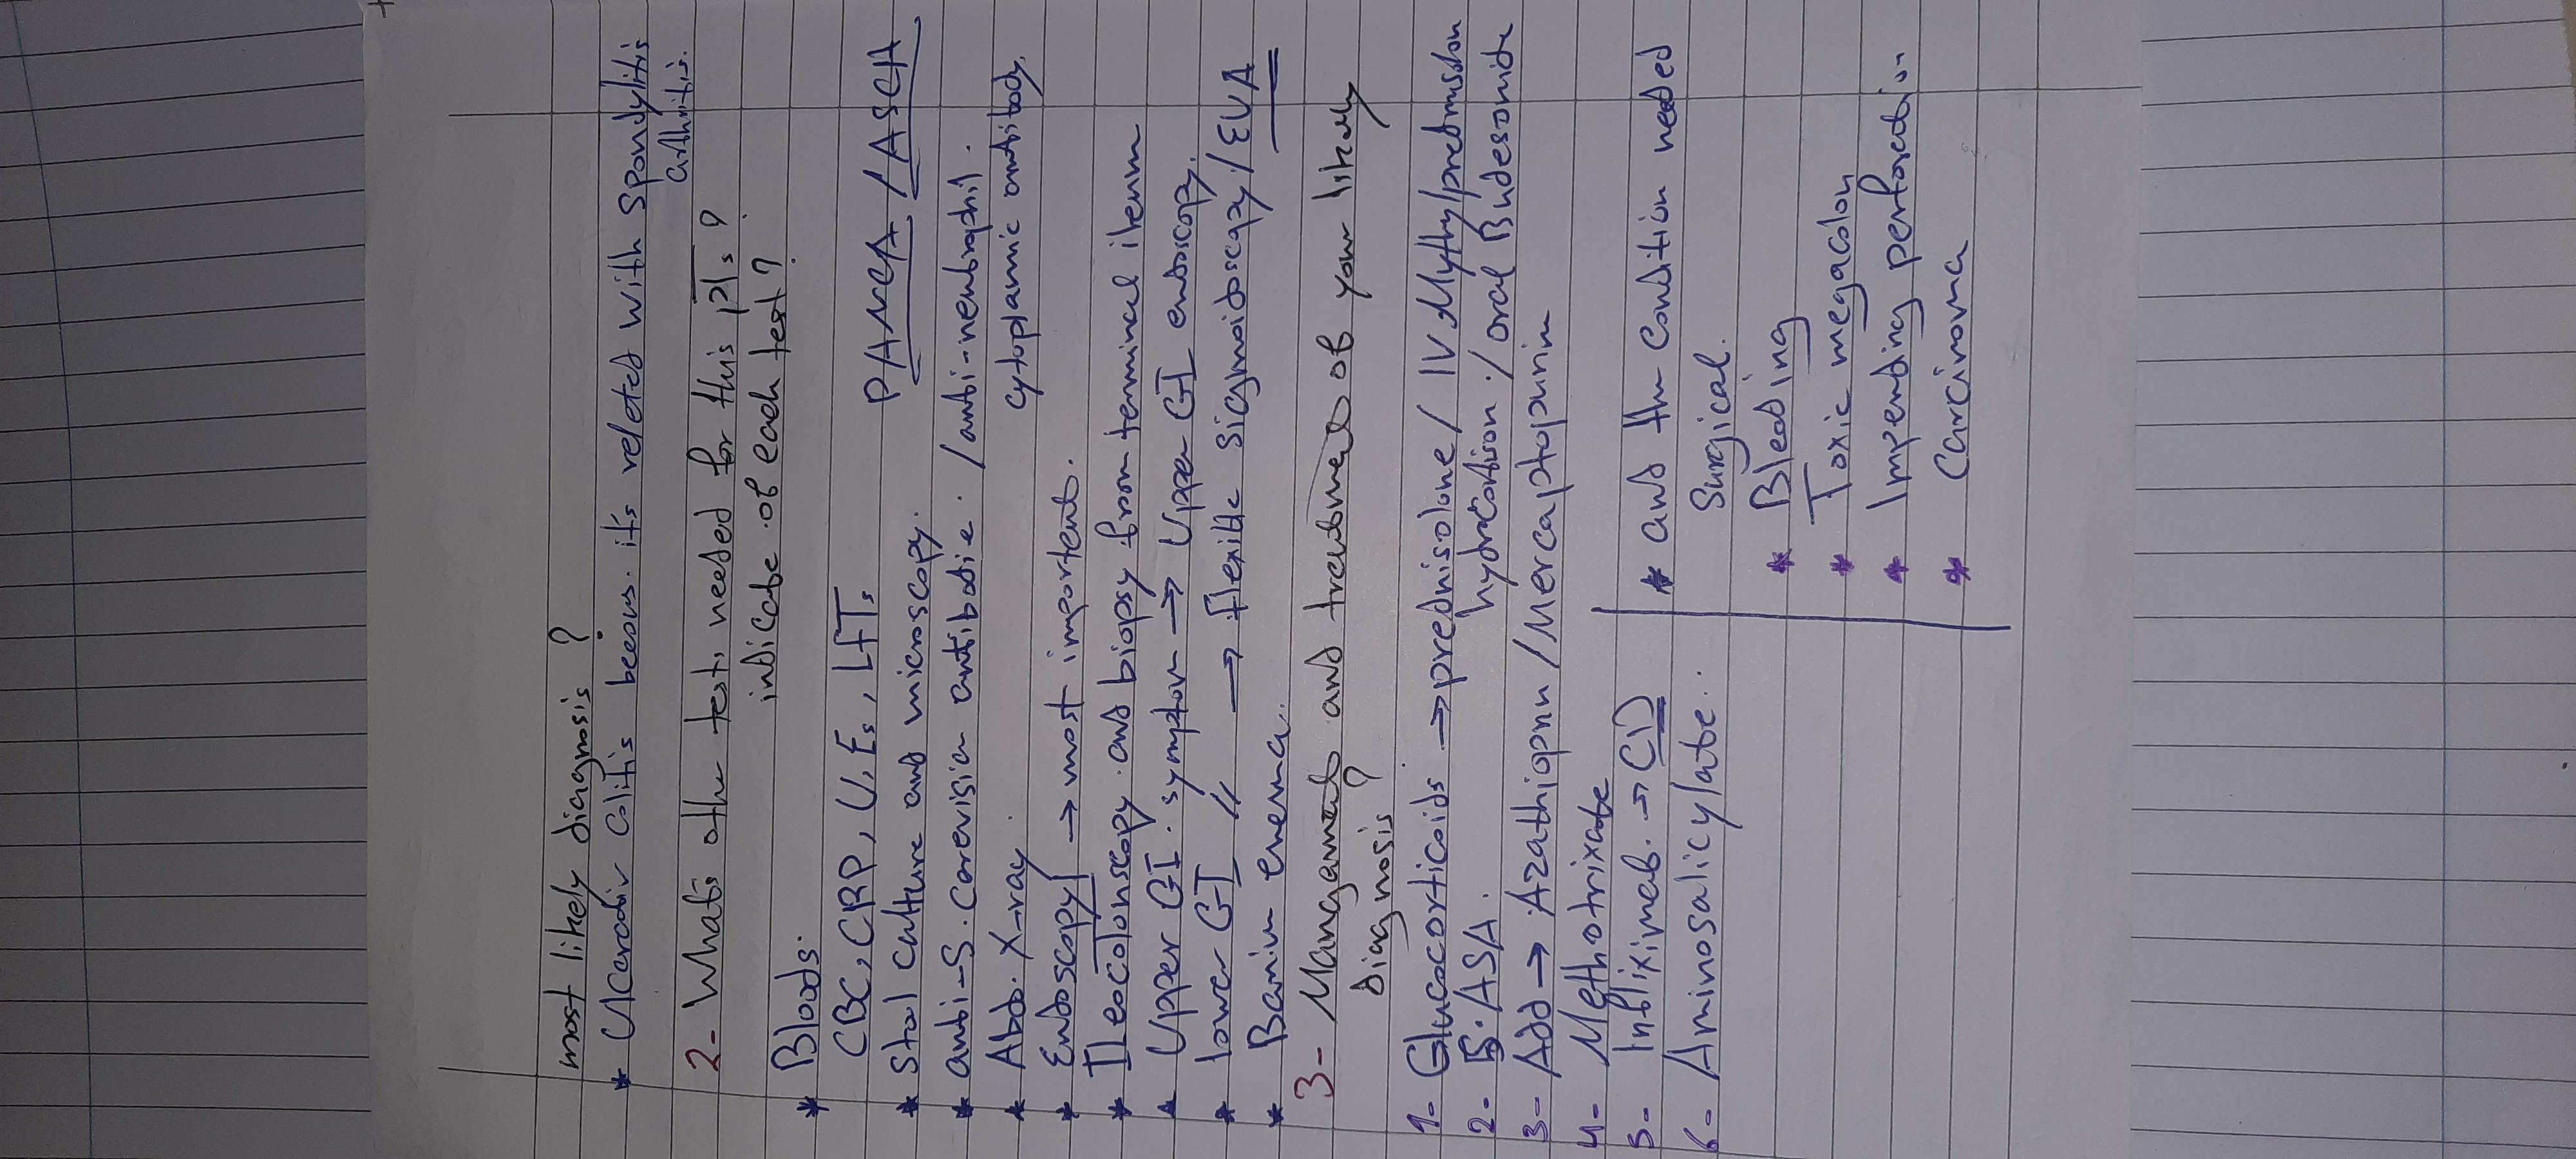 most likely diagnosis ?
* Ulcerativ colitis becaus. its releted with spondylitis
arthritis.
2- Whats other test, needed for this pts ?
indicate of each test ?
* Bloods.
CBC, CRP, U,Es, LFTs PANCA / ASCA
* Stool culture and microscopy.
* anti-S. Carevision antibodie. / anti-neutrophil.
cytoplamic antibody.
* Abdo. X-ray.
* Endoscopy → most important.
* Ileocolonscopy. and biopsy from terminal ileum
* Upper GI. symptom → Upper GI endoscopy.
* lower GI // → flexible sigmoidoscopy / EUA
* Barium enema.
3- Mangament and treatment of your likely
diagnosis ?
1- Glucocorticoids → prednisolone / IV Mythylprednisolon
hydrocortison. / oral Budesonide
2- 5.ASA.
3- Add → Azathioprin / Mercaptopurin
4- Methotrixate
5- Infliximab. → CD
6- Aminosalicylate..
* and the condition needed
Surgical.
* Bleeding
* Toxic megacolon
* Impending perforation
* Carcinoma